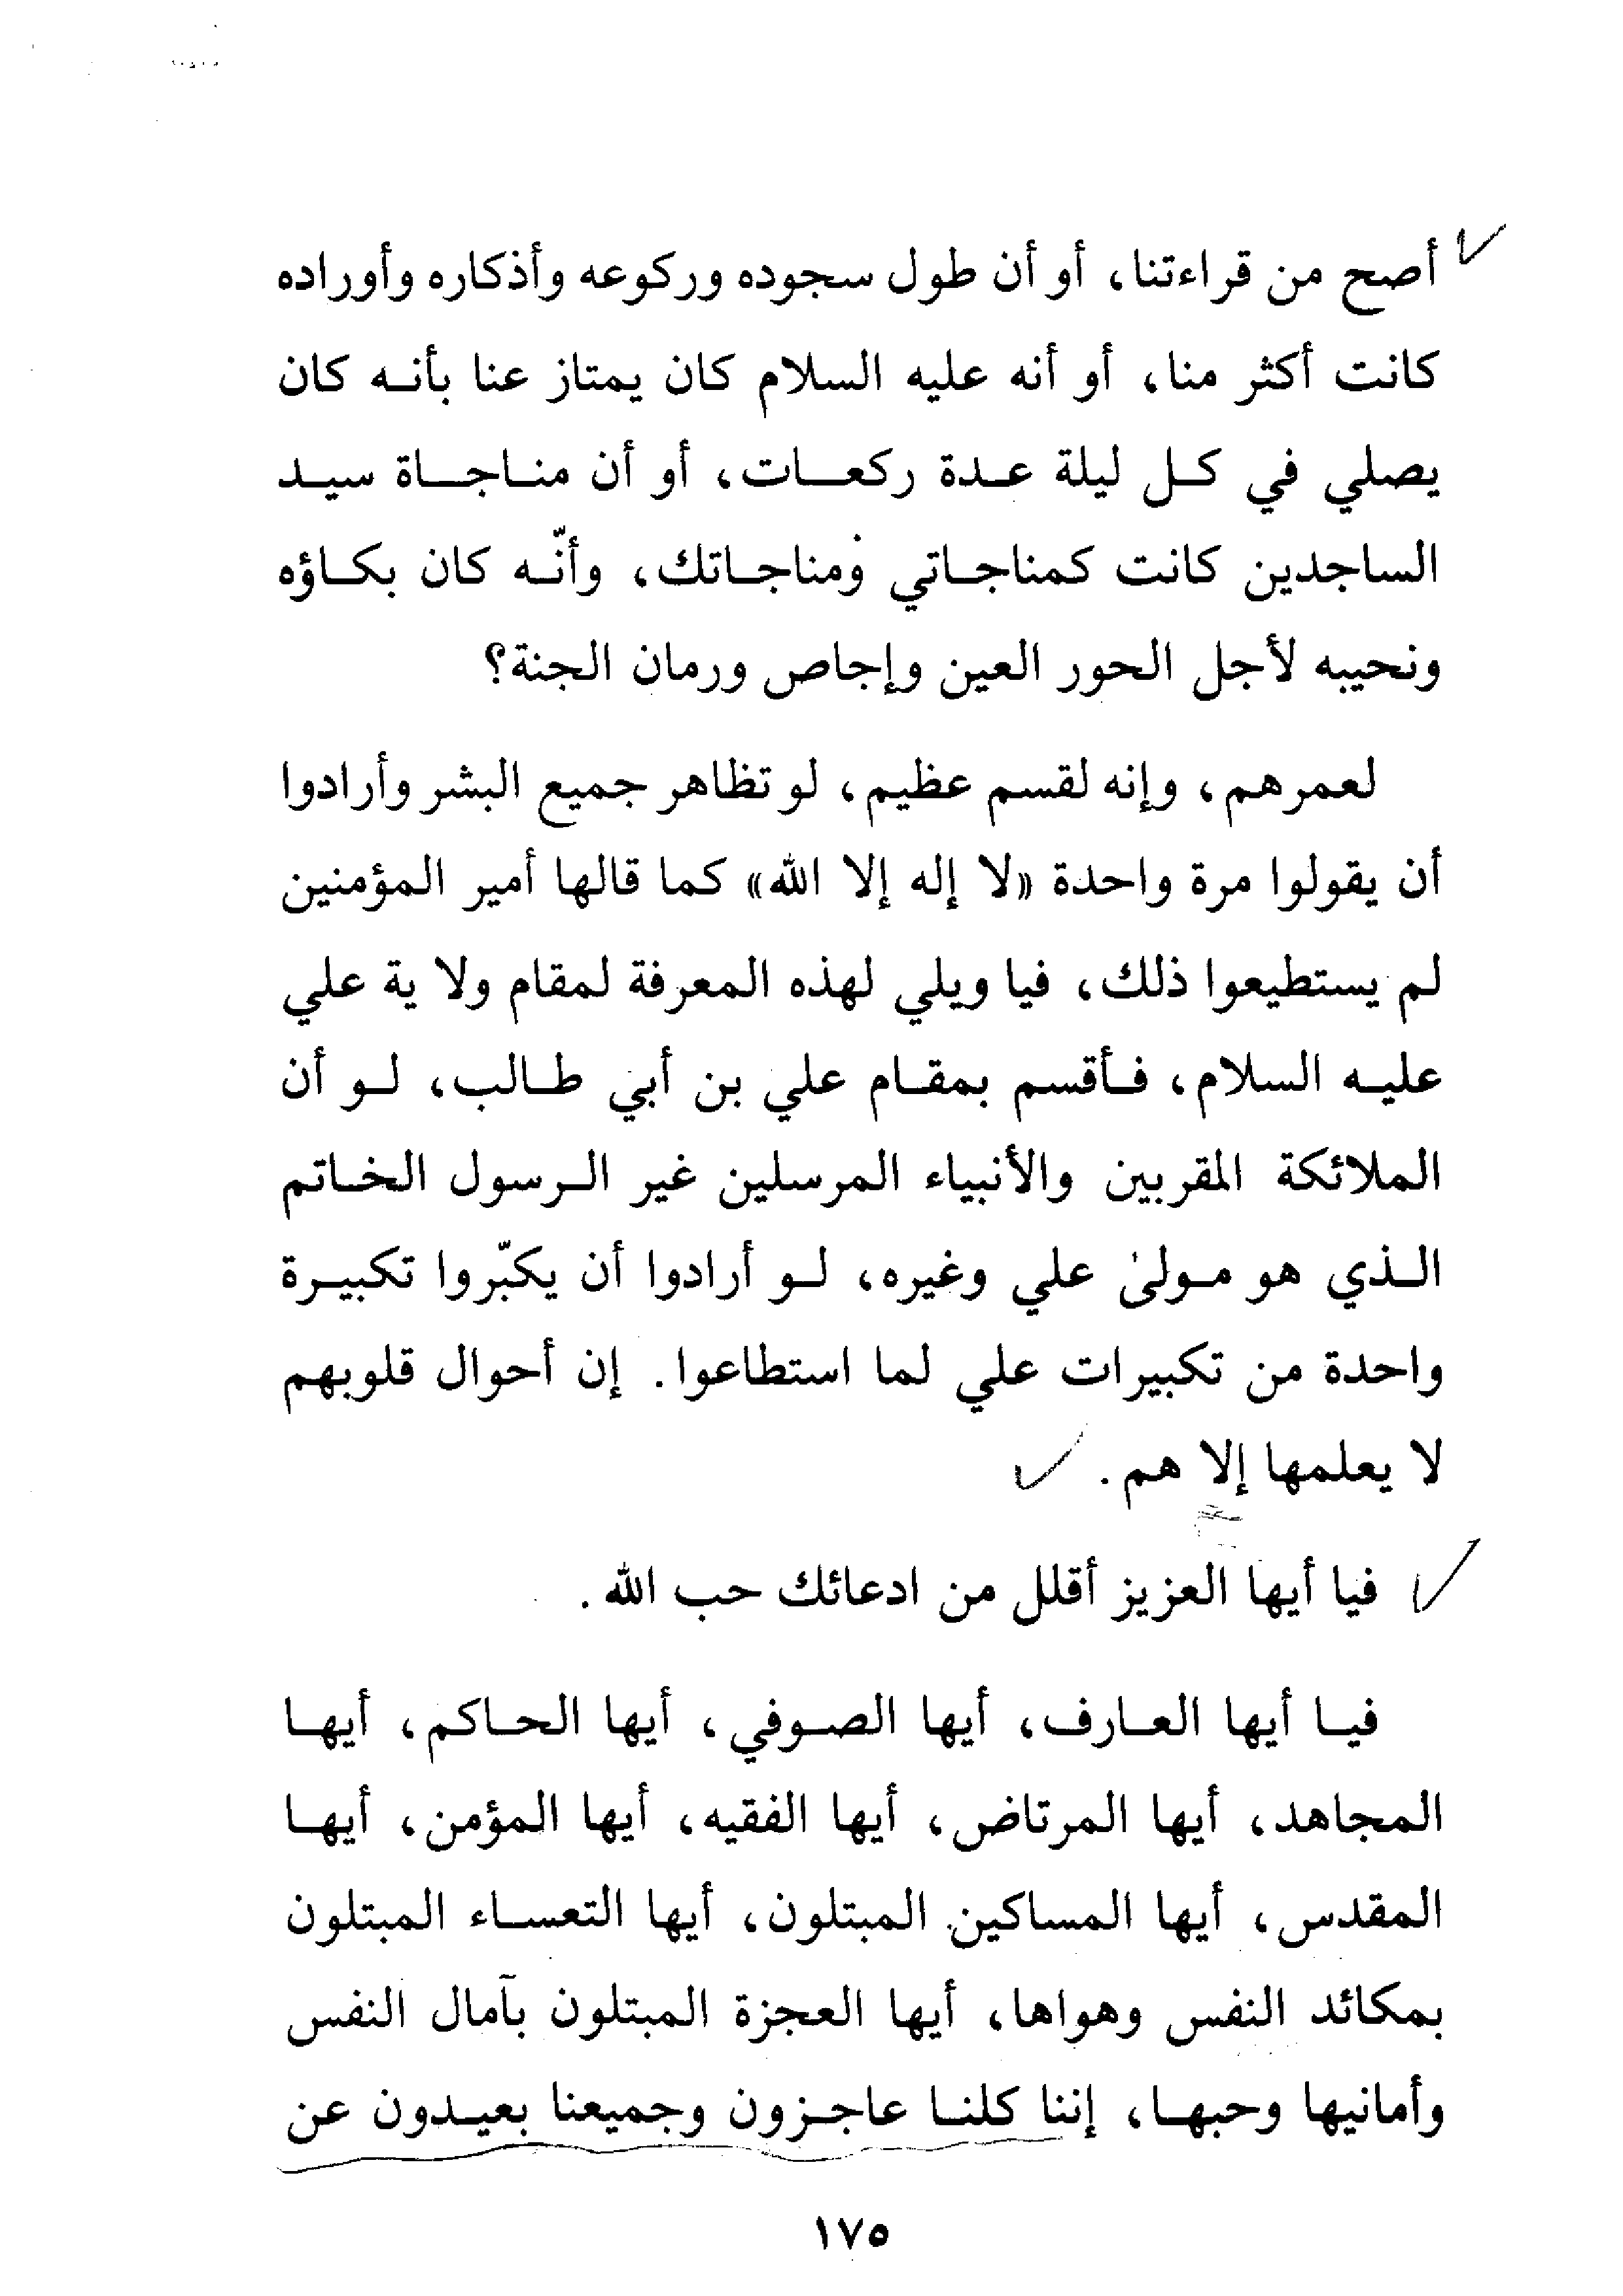 أصح من قراءتنا، أو أن طول سجوده وركوعه وأذكاره وأوراده
كانت أكثر منا، أو أنه عليه السلام كان يمتاز عنا بأنه كان
يصلي في كل ليلة عدة ركعات، أو أن مناجاة سيد
الساجدين كانت كمناجاتي ومناجاتك، وأنّه كان بكاؤه
ونحيبه لأجل الحور العين وإجاص ورمان الجنة؟
لعمرهم، وإنه لقسم عظيم، لو تظاهر جميع البشر وأرادوا
أن يقولوا مرة واحدة «لا إله إلا الله» كما قالها أمير المؤمنين
لم يستطيعوا ذلك، فيا ويلي لهذه المعرفة لمقام ولا ية علي
عليه السلام، فأقسم بمقام علي بن أبي طالب، لو أن
الملائكة المقربين والأنبياء المرسلين غير الرسول الخاتم
الذي هو مولىٰ علي وغيره، لو أرادوا أن يكبّروا تكبيرة
واحدة من تكبيرات علي لما استطاعوا. إن أحوال قلوبهم
لا يعلمها إلا هم.
فيا أيها العزيز أقلل من ادعائك حب الله.
فيا أيها العارف، أيها الصوفي، أيها الحاكم، أيها
المجاهد، أيها المرتاض، أيها الفقيه، أيها المؤمن، أيها
المقدس، أيها المساكين المبتلون، أيها التعساء المبتلون
بمكائد النفس وهواها، أيها العجزة المبتلون بآمال النفس
وأمانيها وحبها، إننا كلنا عاجزون وجميعنا بعيدون عن
١٧٥